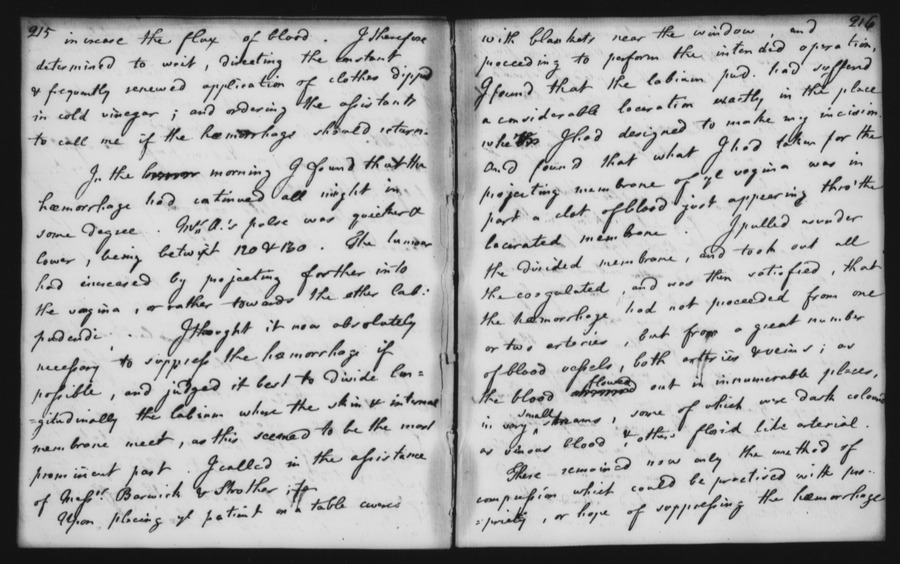 215
increase the flux of blood. I therefore
determined to wait, directing the constant
& frequently renewed application of clothes dipped
in cold vinegar; and ordering the assistants
to call me if the hæmorrhage should return.
In the morning I found that the
hæmorrhage had continued all night in
some degree. Mrs. A.'s pulse was quicker &
lower, being betwixt 120 & 130. The tumor
had increased by projecting farther into
the vagina, or rather towards the other lab:
pudendi. I thought it now absolutely
necessary to suppress the hæmorrhage if
possible, and judged it best to divide lon=
=gitudinally the labium where the skin & internal
membrane meet, as this seemed to be the most
prominent part. I called in the assistance
of Messrs. Barwick & Strother;
Upon placing ye patient on a table covered
216
with blankets near the window, and
proceeding to perform the intended operation,
I found that the labium pud. had suffered
a considerable laceration exactly in the place
where I had designed to make my incision.
And found that what I had taken for the
projecting membrane of ye vagina was in
part a clot of blood just appearing thro' the
lacerated membrane. I pulled asunder
the divided membrane, and took out all
the coagulated, and was then satisfied, that
the hæmorrhage had not proceeded from one
or two arteries, but from a great number
of blood vessels, both arteries & veins; as
the blood flowed out in innumerable places,
in very small streams, some of which were dark colored
as venous blood & others florid like arterial.
There remained now only the method of
compression which could be practised with pro-
=priety, or hope of suppressing the hæmorrhage